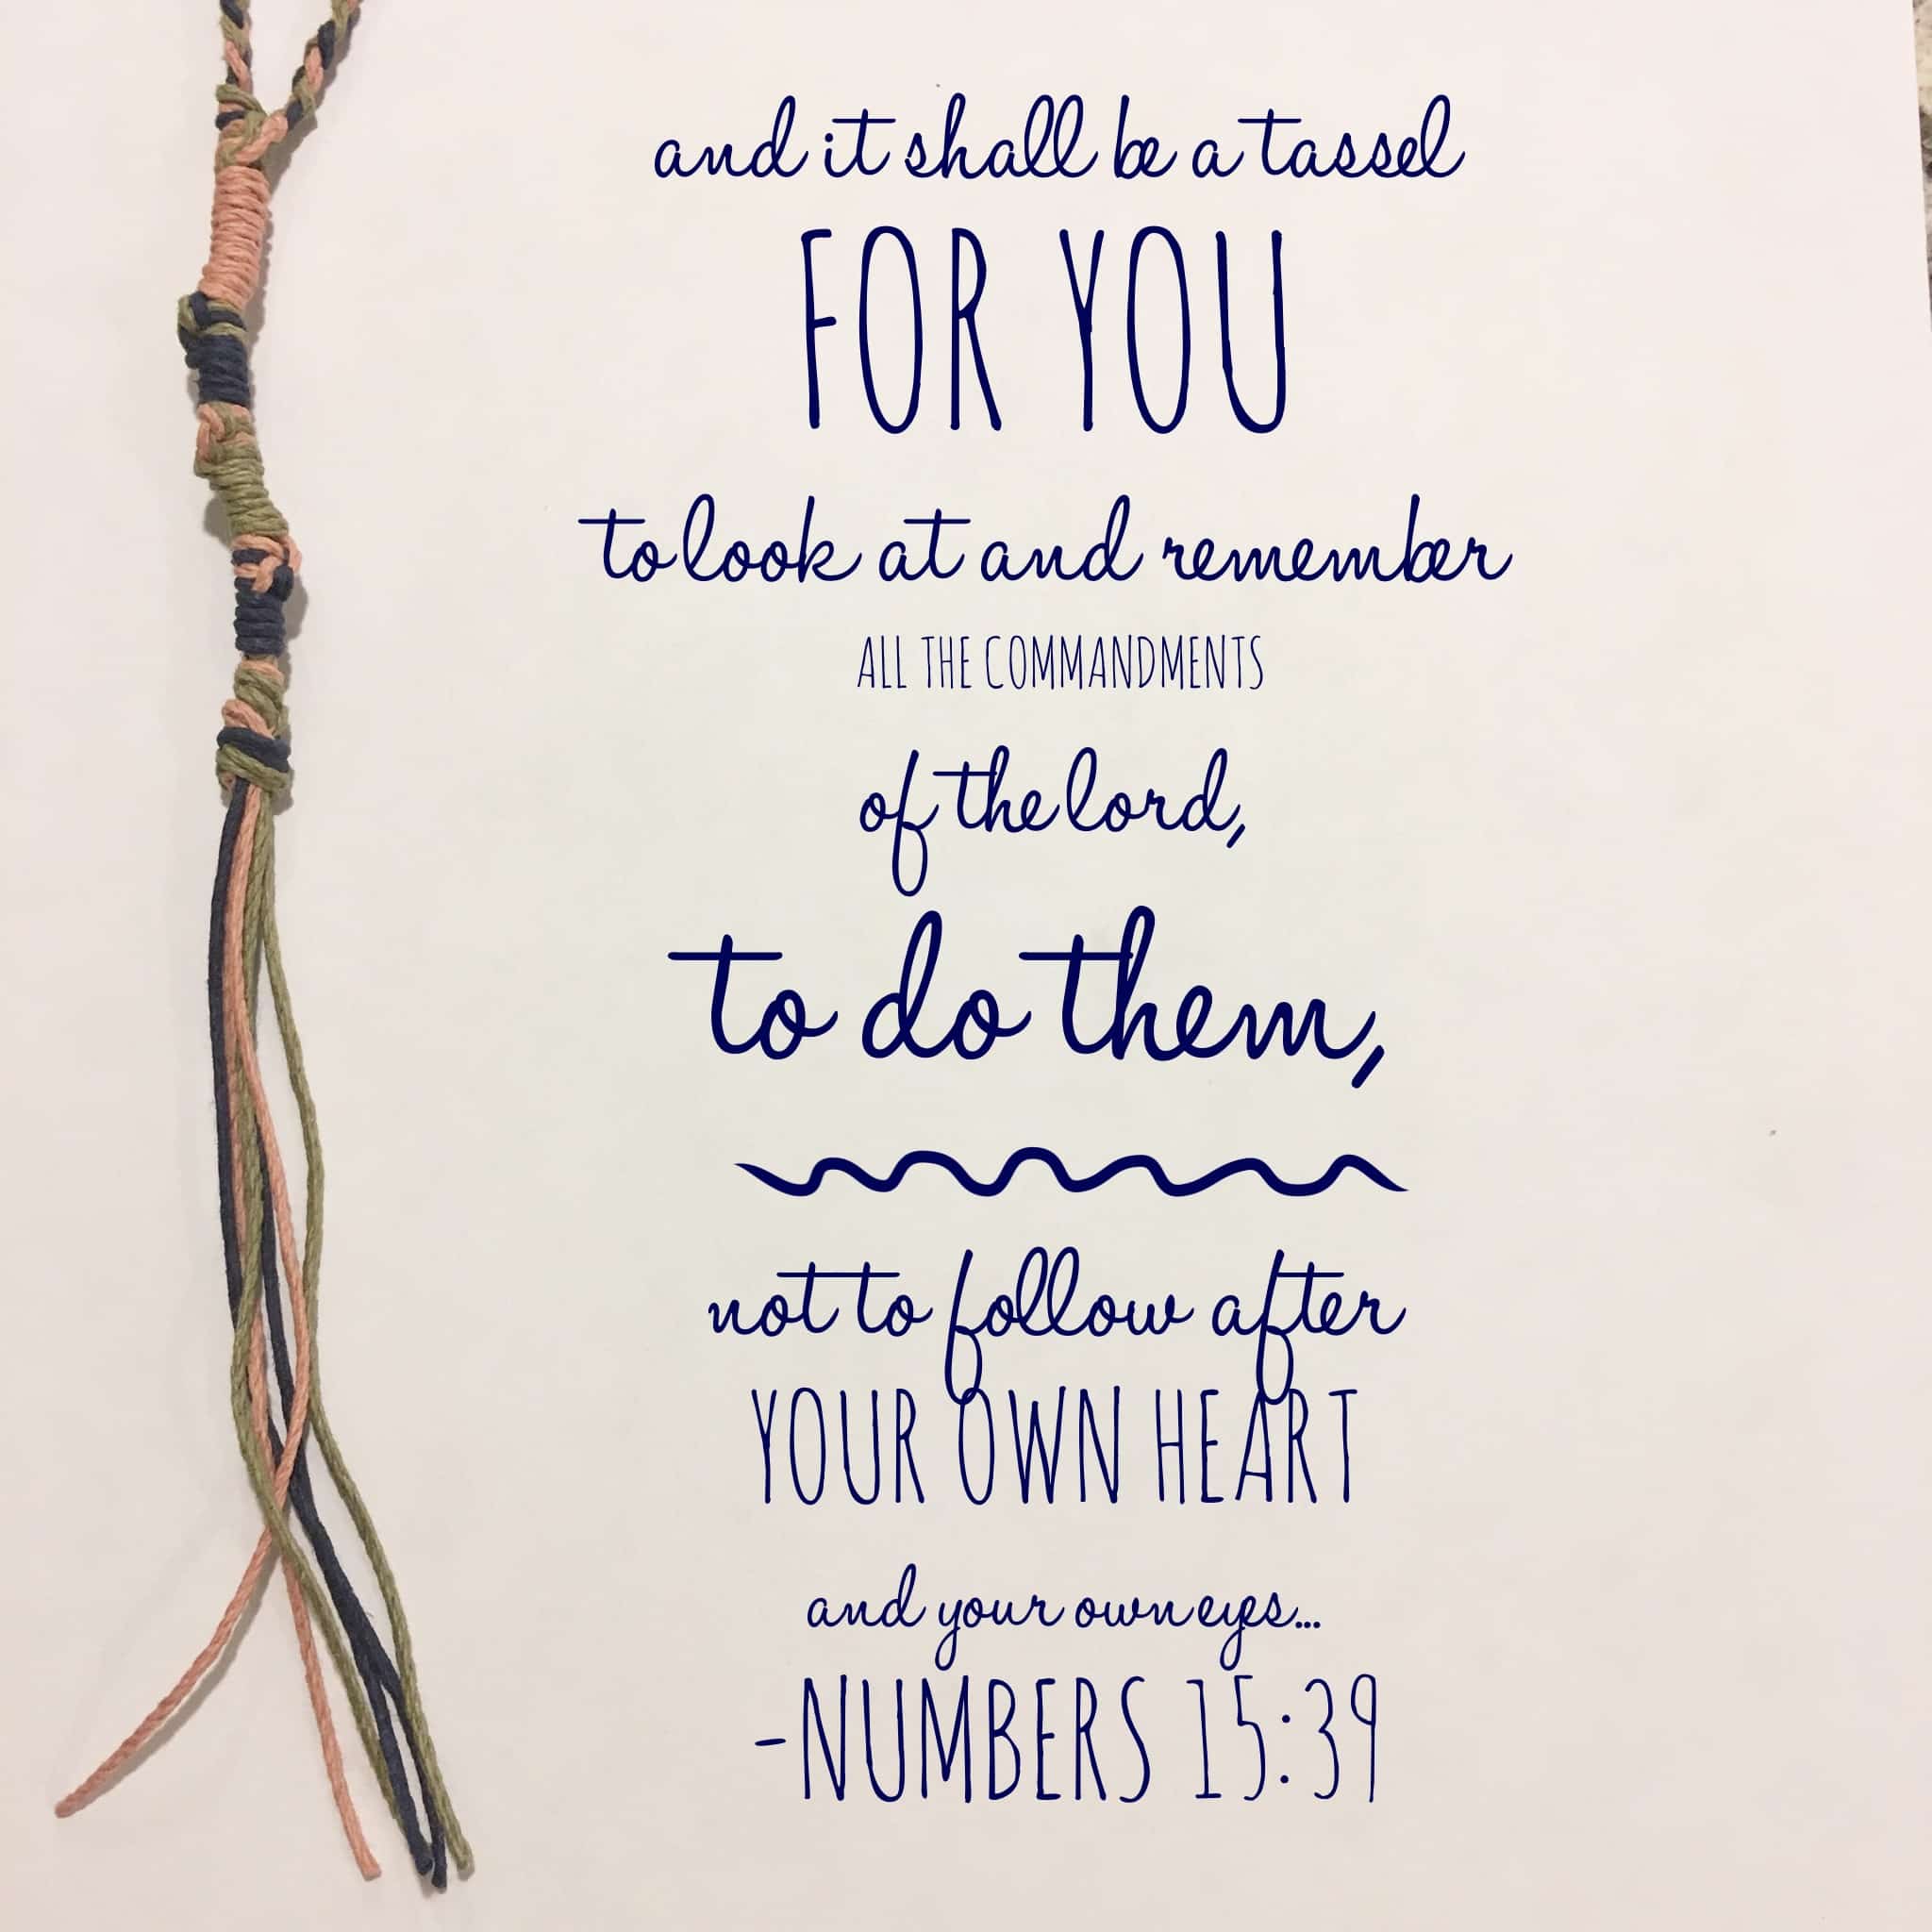 and it shall be a tassel
FOR YOU
to look at and remember
ALL THE COMMANDMENTS
of the lord,
to do them,
not to follow after
YOUR OWN HEART
and your own eyes...
-NUMBERS 15:39